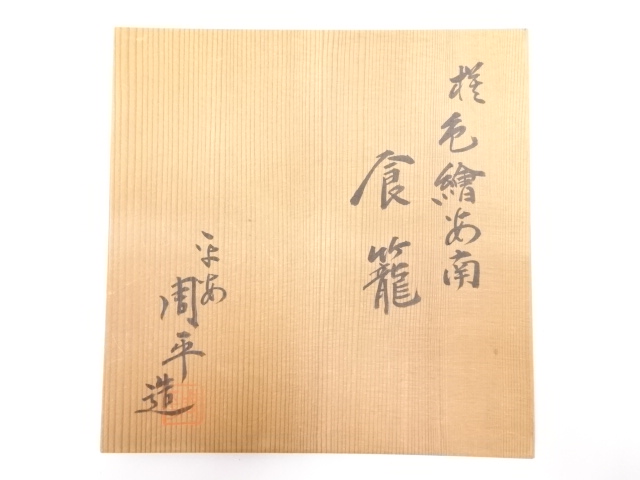 模色繪安南
食籠
平安
周平造